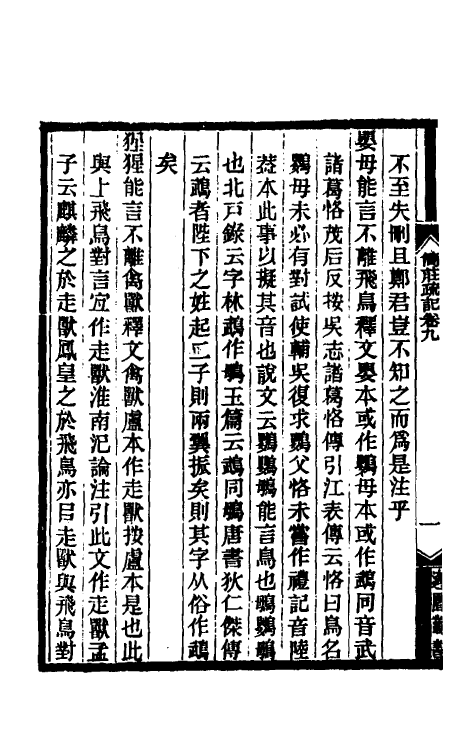 不至失刪且鄭君豈不知之而爲是注乎
嬰母能言不離飛鳥釋文嬰本或作鸚母本或作鵡同音武
諸葛恪茂后反按吳志諸葛恪傳引江表傳云恪曰鳥名
鸚母未必有對試使輔吳復求鸚父恪未嘗作禮記音陸
葢本此事以擬其音也說文云鸚鸚䳇能言鳥也䳇鸚䳇
也北戸錄云字林鵡作䳇玉篇云鵡同䳇唐書狄仁傑傳
云鵡者陛下之姓起二子則兩翼振矣則其字从俗作鵡
矣
猩猩能言不離禽獸釋文禽獸盧本作走獸按盧本是也此
與上飛鳥對言宜作走獸淮南氾論注引此文作走獸孟
子云麒麟之於走獸鳳皇之於飛鳥亦㠯走獸與飛鳥對
簡莊疏記卷九
一